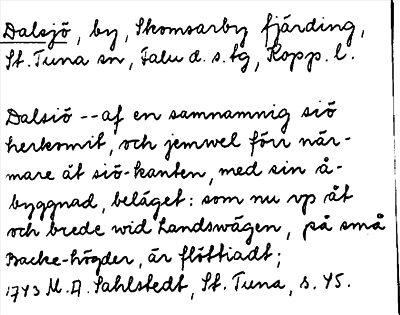 Dalsjö, by, Skomsarby fjärding,
St. Tuna sn, Falu d. s. tg, Kopp. l.
Dalsiö -- af en samnamnig siö
herkomit, och jemwel förr när-
mare åt siö-kanten, med sin å-
byggnad, beläget: som nu vp åt
och brede wid Landswägen, på små
Backe-högder, är flöttiadt;
1743 M. A. Sahlstedt, St. Tuna, s. 45.